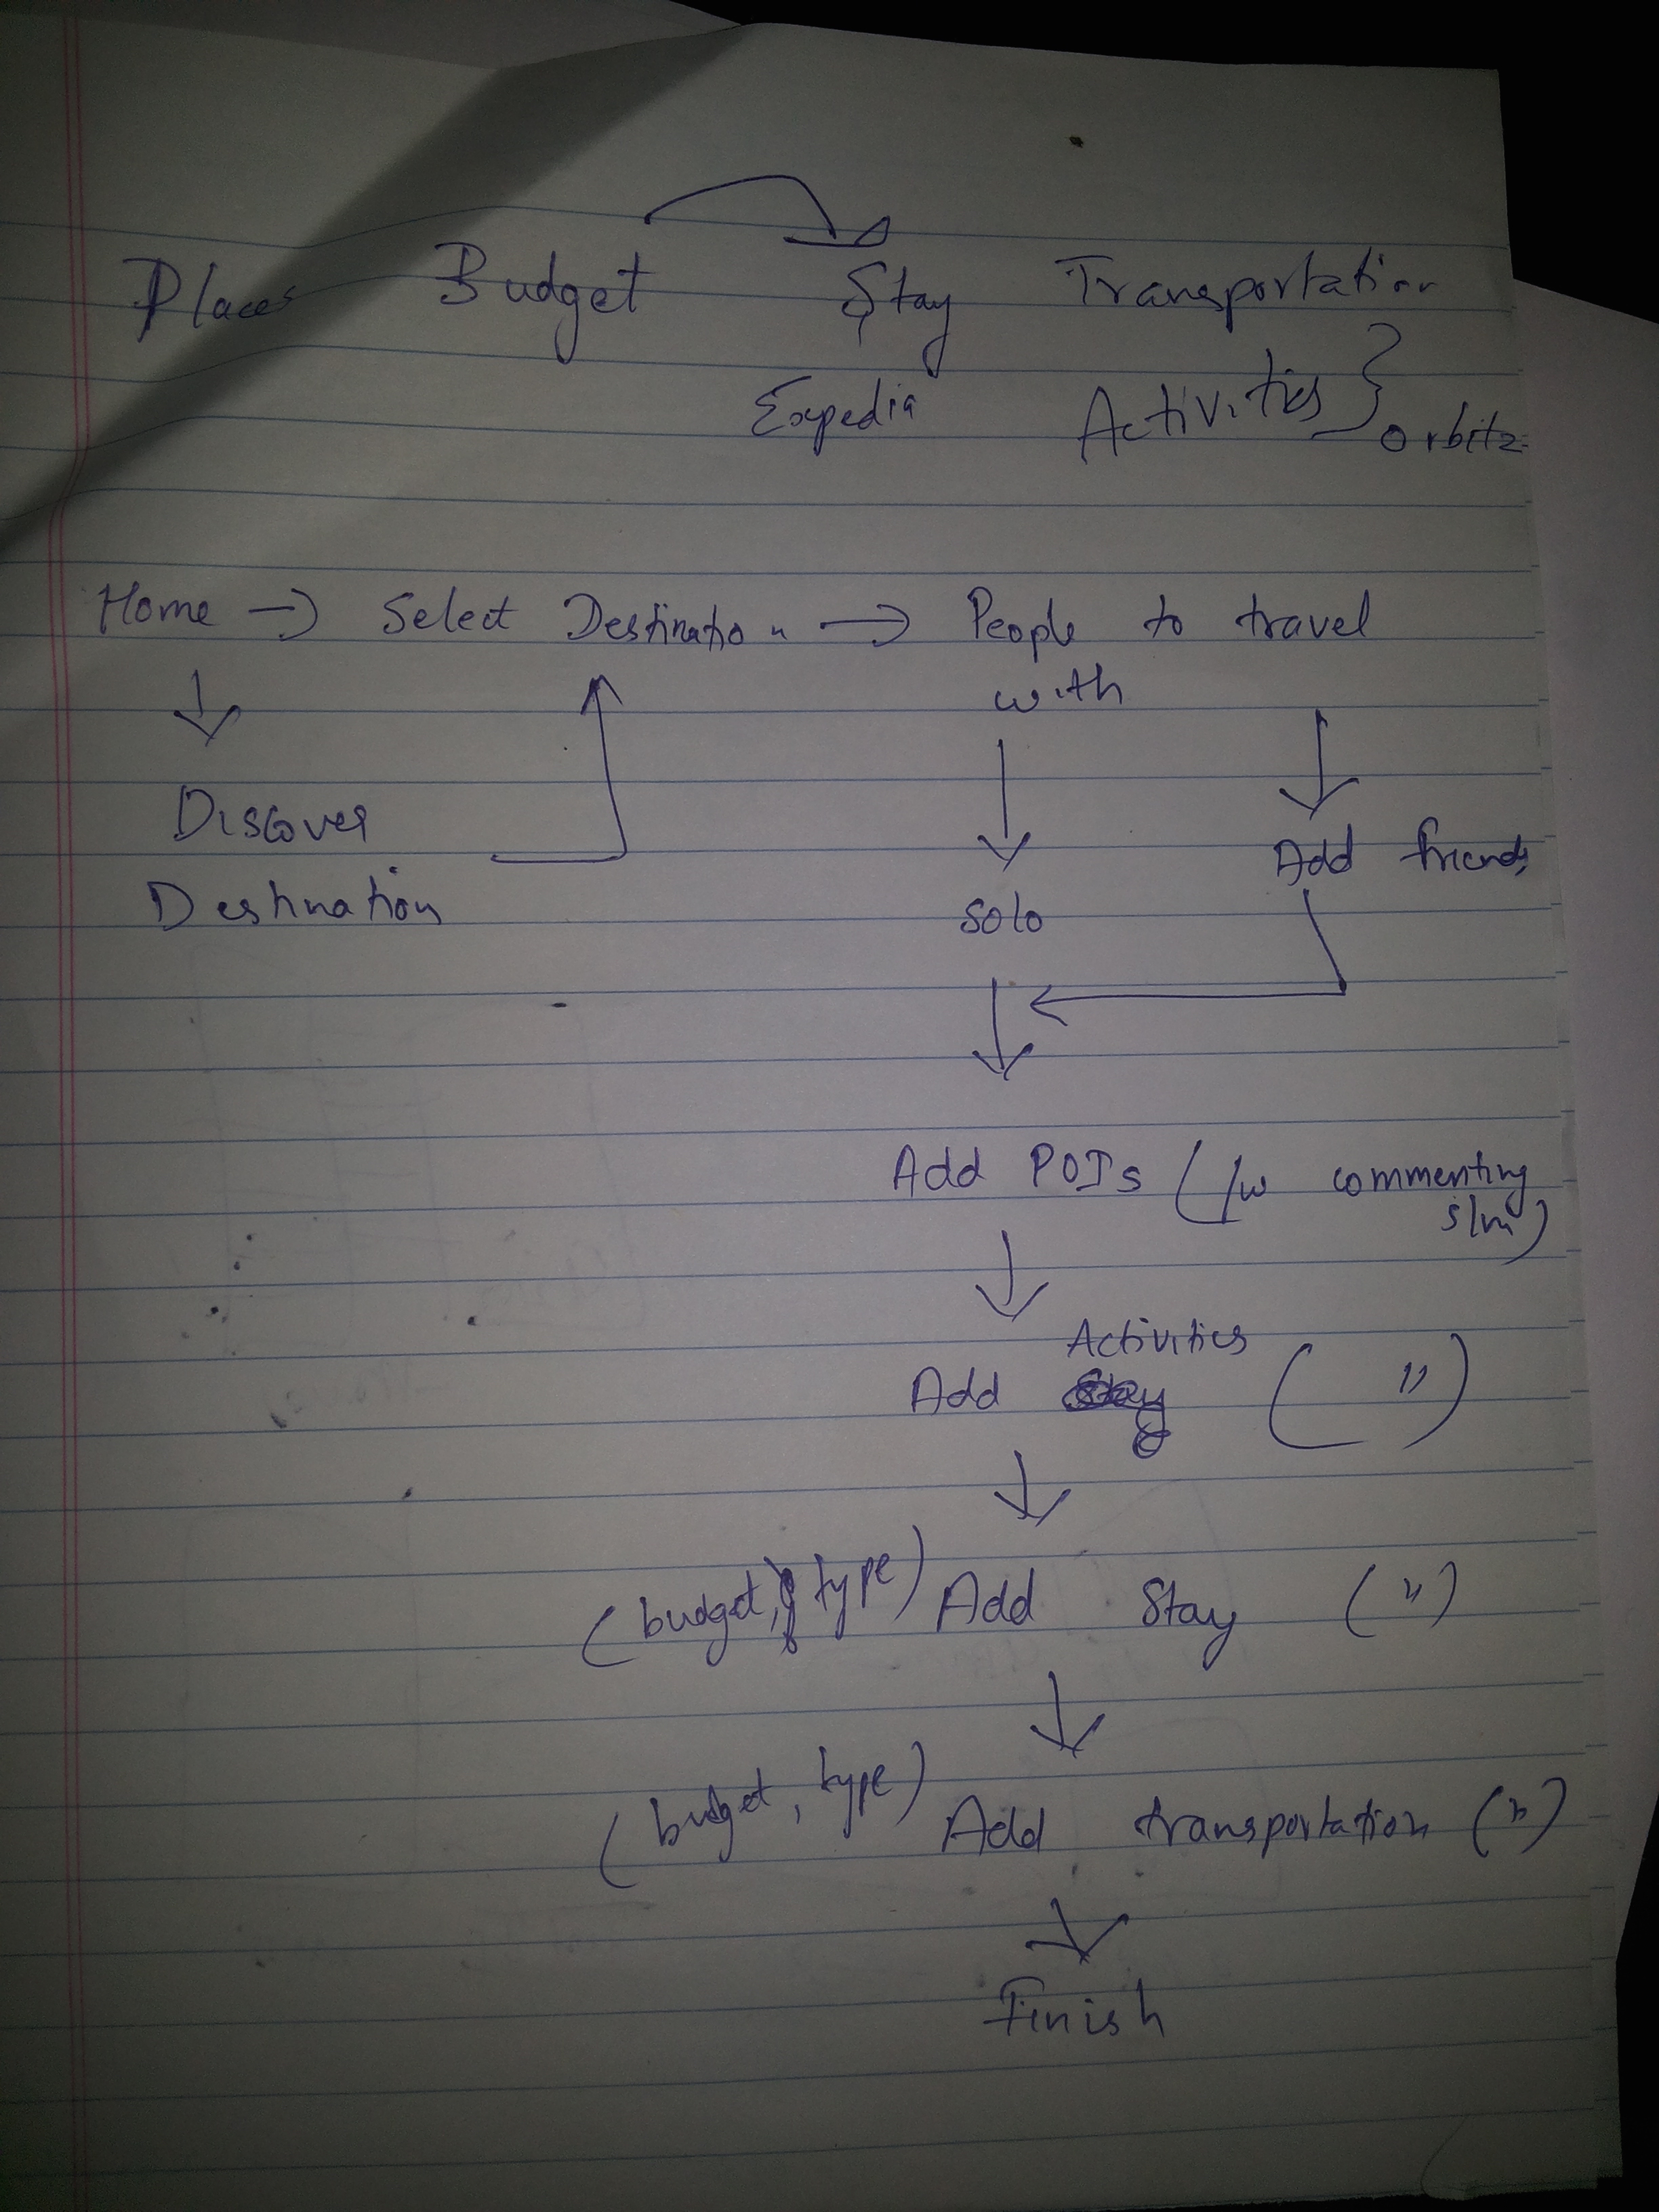 Places Budget Stay Transportation
Expedia Activities } Orbitz
Home → Select Destination → People to travel
with
Discover
Destination
Solo
Add friends
Add POIs (/w commenting
s/m)
Activities
Add (")
(budget, type) Add Stay (")
(budget, type) Add transportation (")
Finish